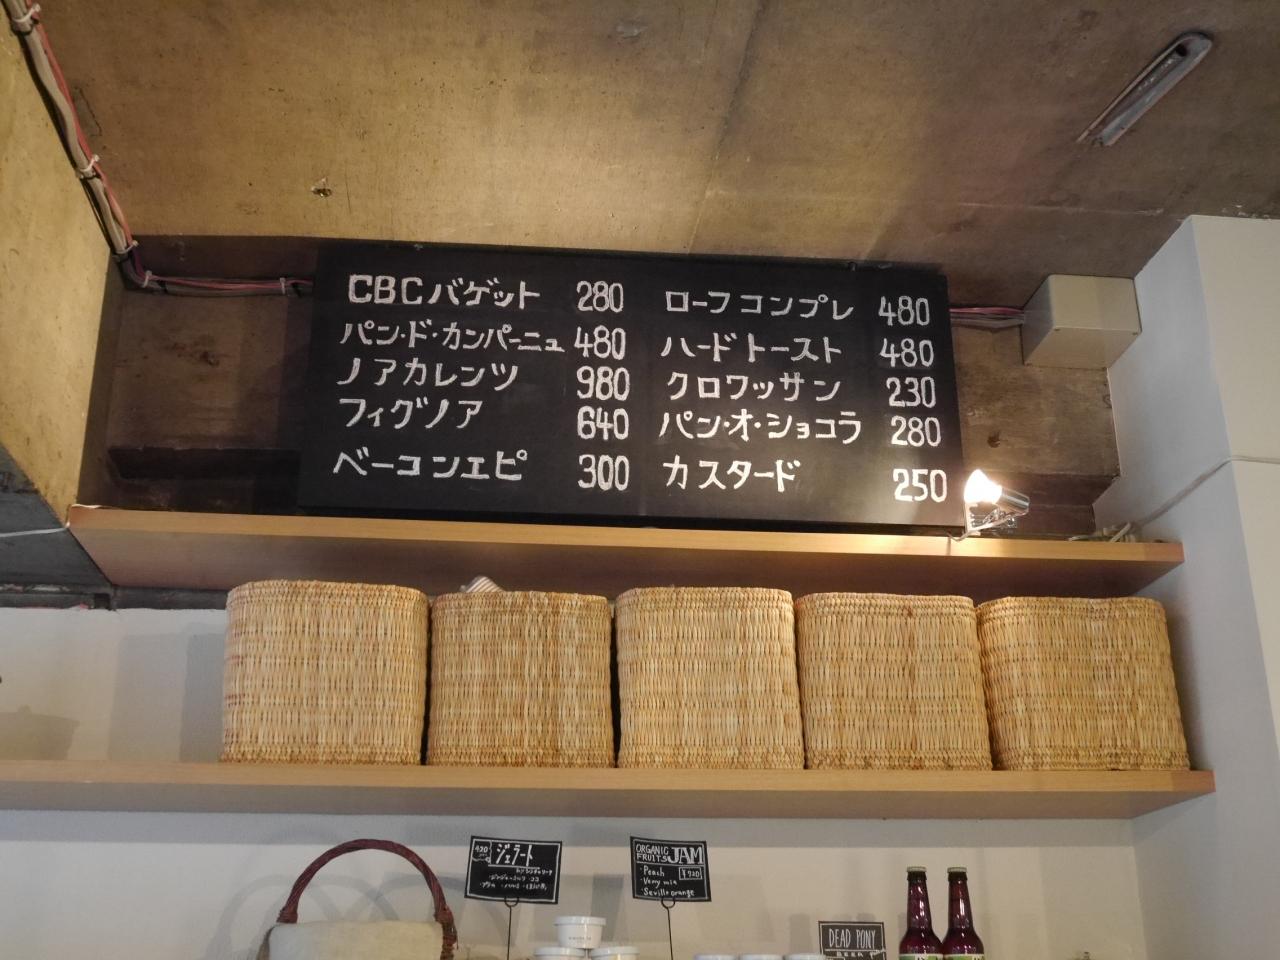 CBCバゲット 280
パン・ド・カンパーニュ 480
ノアカレンツ 980
フィグノア 640
ベーコンエピ 300
ローフコンプレ 480
ハードトースト 480
クロワッサン 230
パン・オ・ショコラ 280
カスタード 250
ジェラート
ORGANIC
FRUITS JAM
・Peach ¥920
・Very mix
・Seville orange
DEAD PONY
BEER